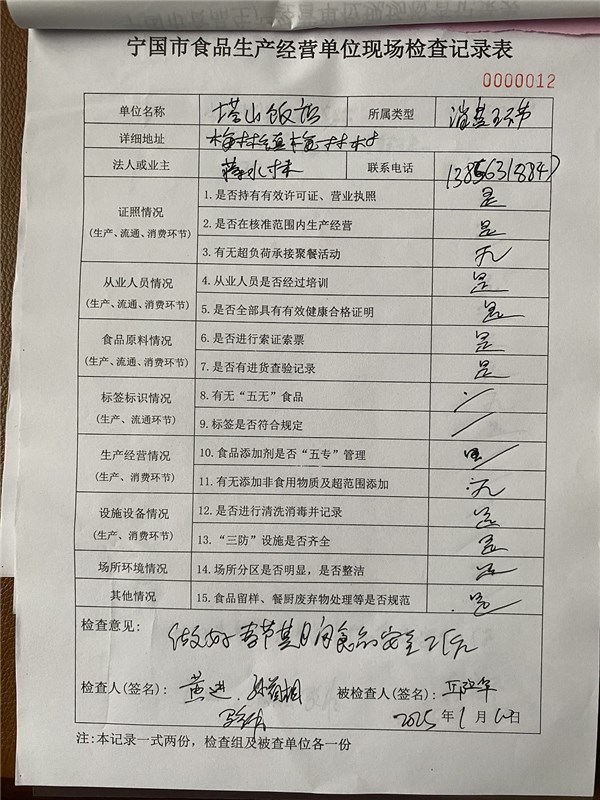 宁国市食品生产经营单位现场检查记录表
0000012
单位名称 塔山饭店 所属类型 消费环节
详细地址 梅林镇梅林村
法人或业主 联系电话
证照情况 (生产、流通、消费环节)
1.是否持有有效许可证、营业执照 是
2.是否在核准范围内生产经营 是
3.有无超负荷承接聚餐活动 无
从业人员情况 (生产、流通、消费环节)
4.从业人员是否经过培训 是
5.是否全部具有有效健康合格证明 是
食品原料情况 (生产、流通、消费环节)
6.是否进行索证索票 是
7.是否有进货查验记录 是
标签标识情况 (生产、流通环节)
8.有无“五无”食品 /
9.标签是否符合规定 /
生产经营情况 (生产、消费环节)
10.食品添加剂是否“五专”管理 /
11.有无添加非食用物质及超范围添加 无
设施设备情况 (生产、消费环节)
12.是否进行清洗消毒并记录 是
13.“三防”设施是否齐全 是
场所环境情况 14.场所分区是否明显，是否整洁 是
其他情况 15.食品留样、餐厨废弃物处理等是否规范 是
检查意见：
做好春节期间食品安全工作
检查人(签名)： 黄进 被检查人(签名)：
2025年1月10日
注:本记录一式两份，检查组及被查单位各一份